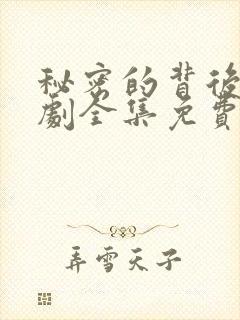 秘密的背後
劇全集免費
弄雪天子